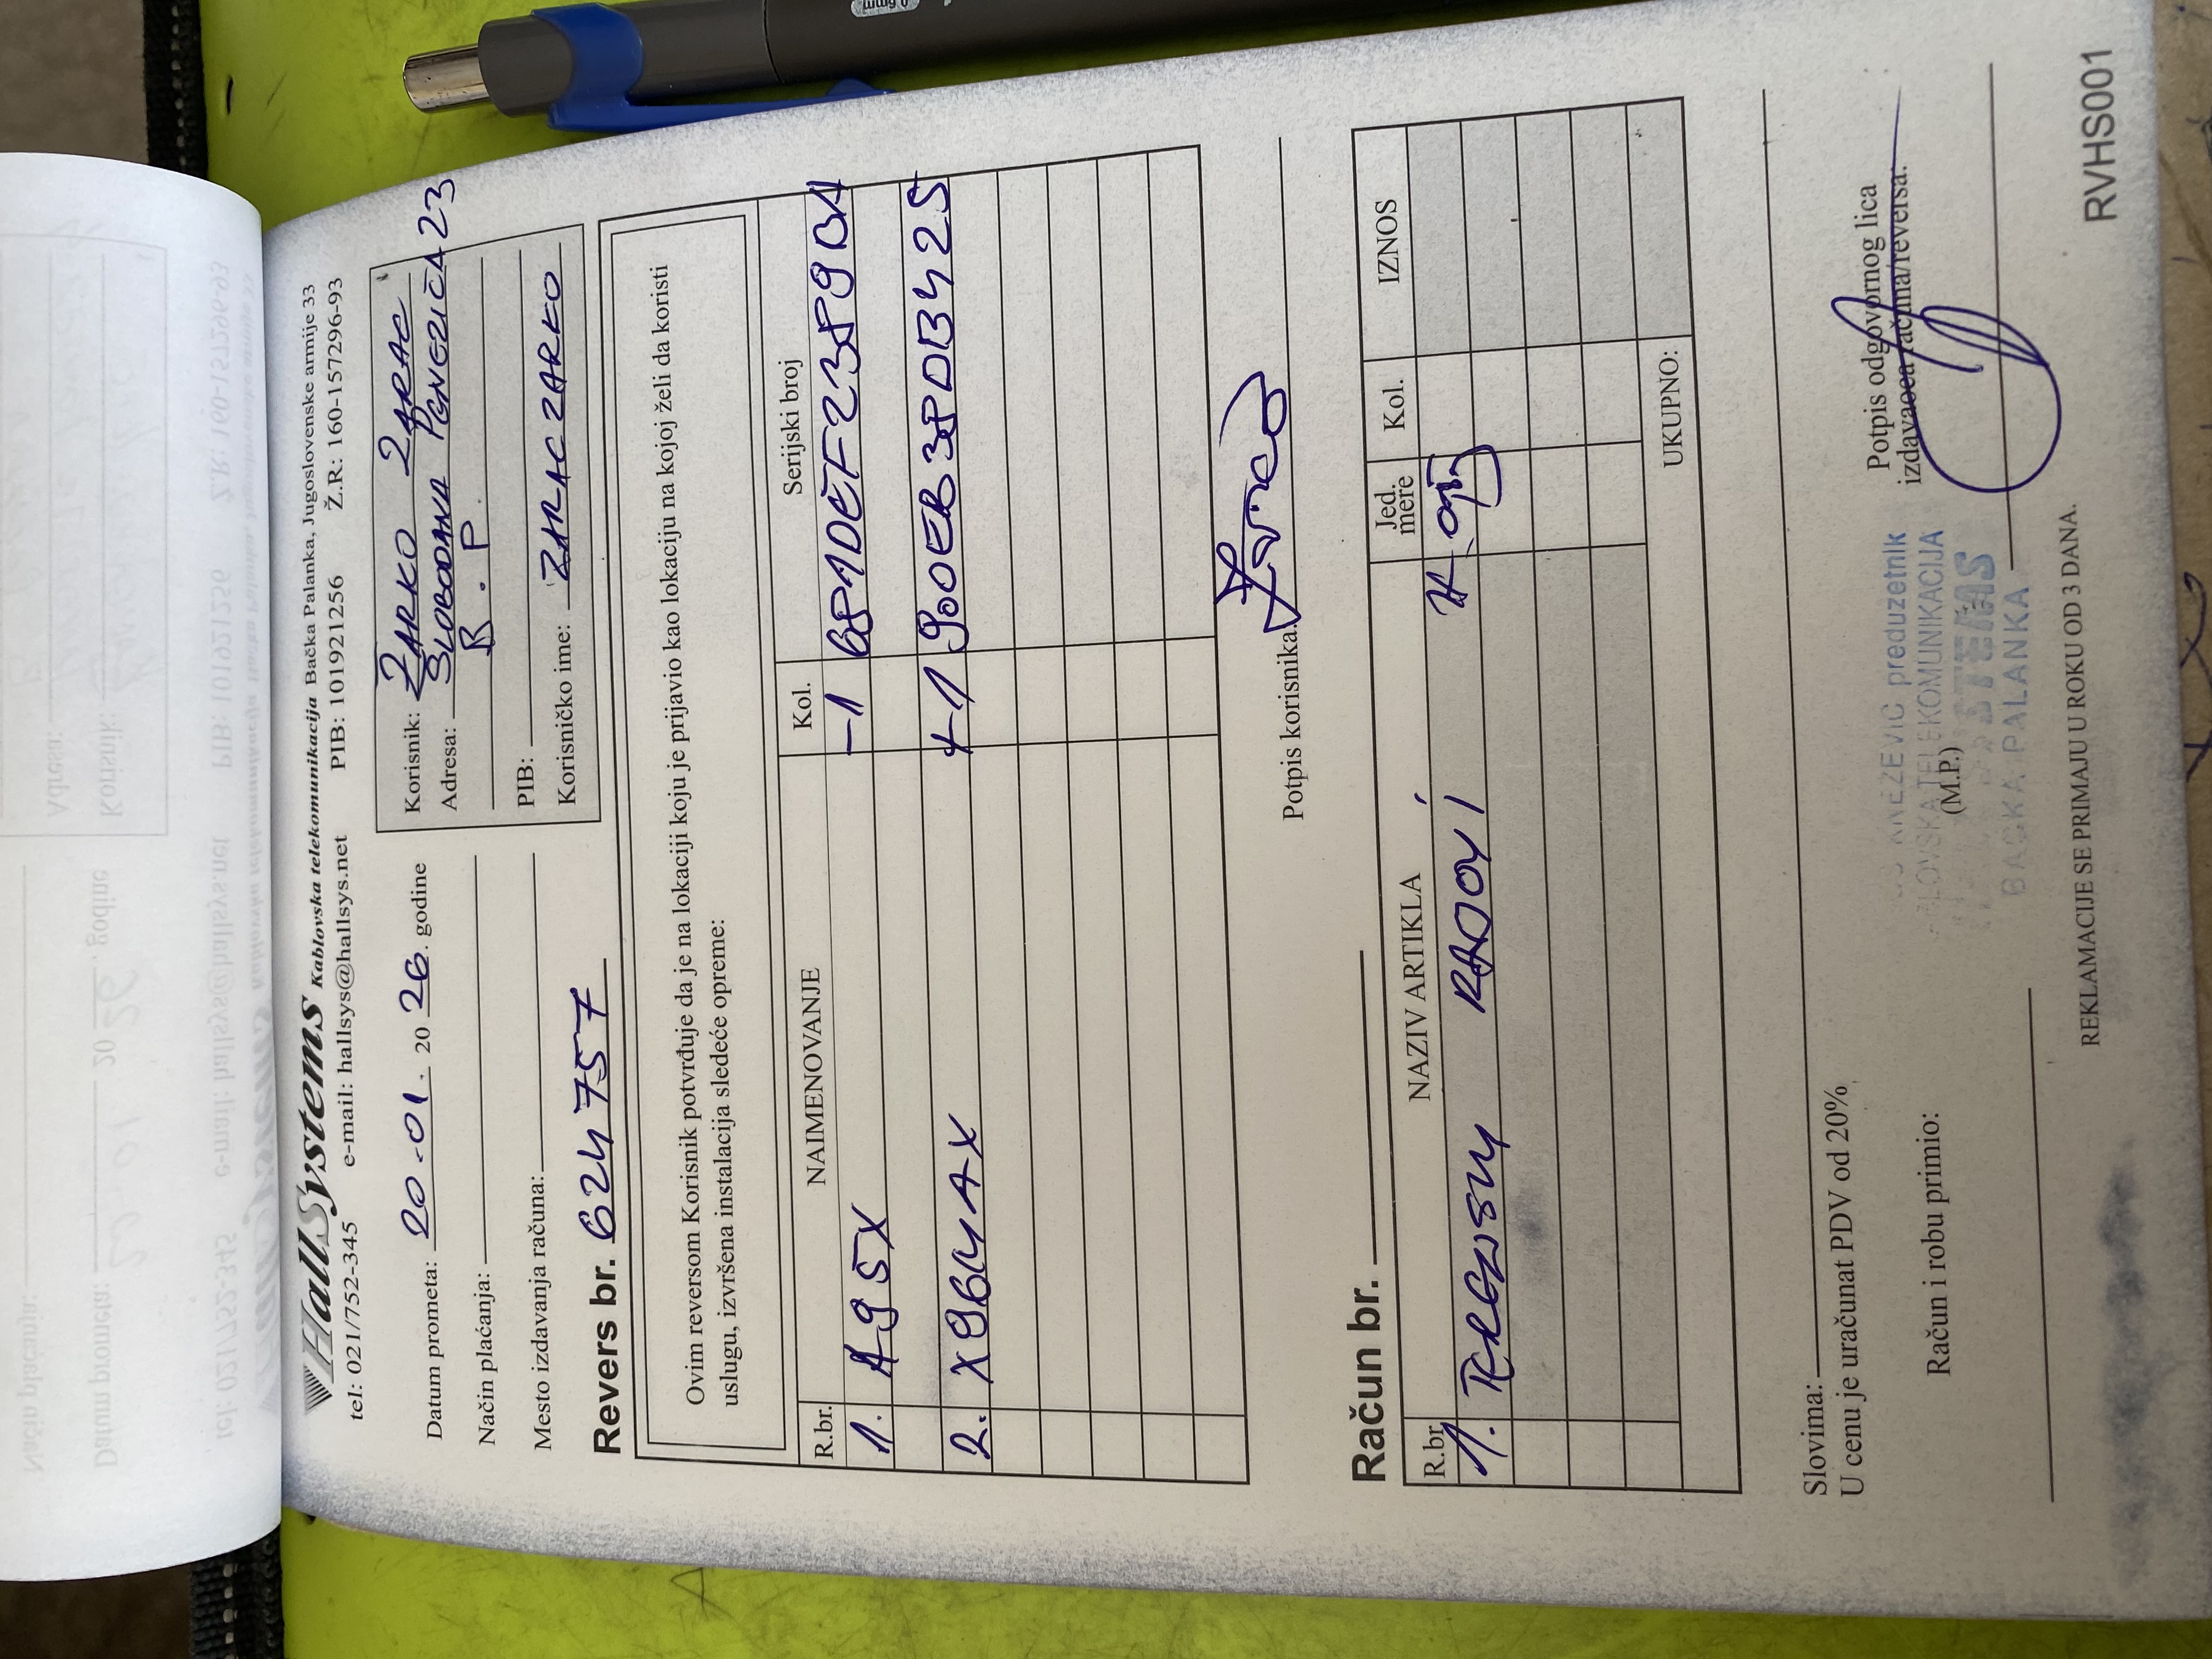 HallSystems Kablovska telekomunikacija Bačka Palanka, Jugoslovenske armije 33
tel: 021/752-345 e-mail: hallsys@hallsys.net PIB: 101921256 Ž.R.: 160-157296-93
Datum prometa: 20.01. 20 26. godine
Način plaćanja:
Mesto izdavanja računa:
Korisnik: ŽARKO ŽARAC
Adresa: SLOBODANA PENEZIĆA 23
B.P.
PIB:
Korisničko ime: ZARACZARKO
Revers br. 624757
Ovim reversom Korisnik potvrđuje da je na lokaciji koju je prijavio kao lokaciju na kojoj želi da koristi
uslugu, izvršena instalacija sledeće opreme:
R.br. NAIMENOVANJE Kol. Serijski broj
1. A95X -1
2. X96MAX +1
Potpis korisnika.
Račun br.
R.br. NAZIV ARTIKLA Jed. mere Kol. IZNOS
1. TERENSKI RADOVI
UKUPNO:
Slovima:
U cenu je uračunat PDV od 20%
Račun i robu primio:
(M.P.)
preduzetnik
TELEKOMUNIKACIJA
BAČKA PALANKA
Potpis odgovornog lica
izdavaoca računa/reversa:
REKLAMACIJE SE PRIMAJU U ROKU OD 3 DANA.
RVHS001